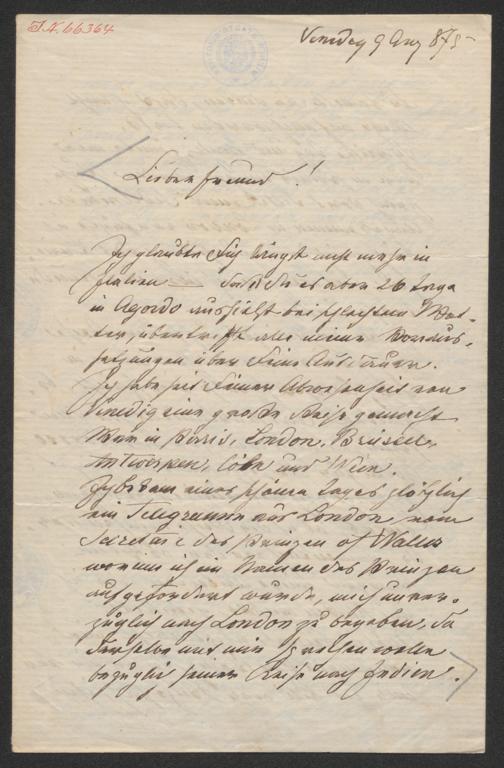 I.N. 66364
Venedig 9 Aug 875
Lieber Freund!
Ich glaubte Dich längst nicht mehr in
Italien — daß Du es aber 26 Tage
in Agordo aushieltst bei schlechtem Wet-
ter, übertrifft alle meine Voraus-
setzungen über Deine Ausdauer.
Ich habe seit Deiner Abwesenheit von
Venedig eine große Reise gemacht
War in Paris, London, Brüssel,
Antwerpen, Cöln und Wien.
Ich bekam eines schönen Tages plötzlich
ein Telegramm aus London vom
Secretair des Prinzen of Wales
worin ich im Namen des Prinzen
aufgefordert wurde, mich unver-
züglich nach London zu begeben, da
derselbe mit mir sprechen wolle
bezüglich seiner Reise nach Indien.